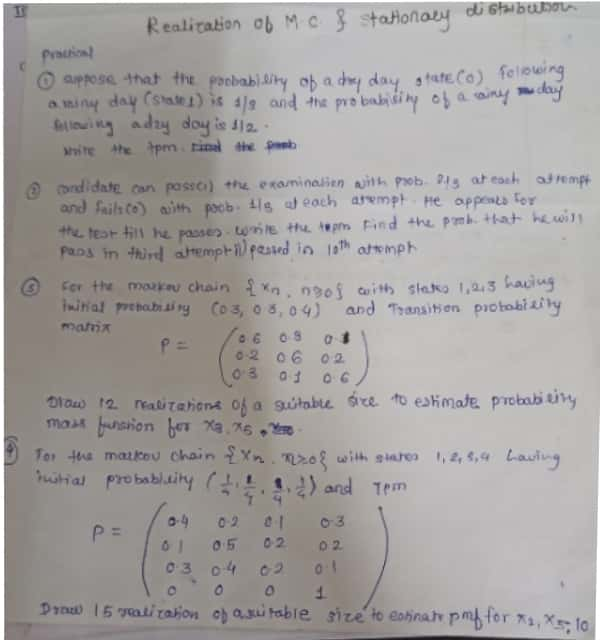 Realization of M.C. & stationary distribution
practical
① suppose that the probability of a dry day state (0) following
a rainy day (state 1) is 1/3 and the probability of a rainy day
following a dry day is 1/2.
write the tpm. Find the prob
② candidate can pass(1) the examination with prob. 2/3 at each attempt
and fails(0) with prob. 1/3 at each attempt. He appears for
the test till he passes. write the tpm Find the prob. that he will
pass in third attempt passed in 10th attempt
③ For the markov chain {Xn, n≥0} with states 1,2,3 having
initial probability (0.3, 0.3, 0.4) and Transition probability
matrix
P = 0.6 0.3 0.1
0.2 0.6 0.2
0.3 0.1 0.6
Draw 12 realizations of a suitable size to estimate probability
mass function for X3, X5.
④ For the markov chain {Xn, n≥0} with states 1,2,3,4 having
initial probability (1/4, 1/4, 1/4, 1/4) and Tpm
P = 0.4 0.2 0.1 0.3
0.1 0.5 0.2 0.2
0.3 0.4 0.2 0.1
0 0 0 1
Draw 15 realization of a suitable size to estimate pmf for X2, X5, 10